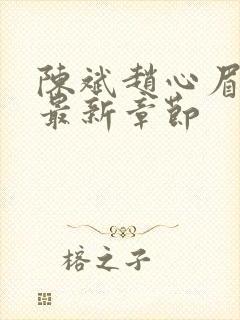 陳斌趙心眉
最新章節
榕之子